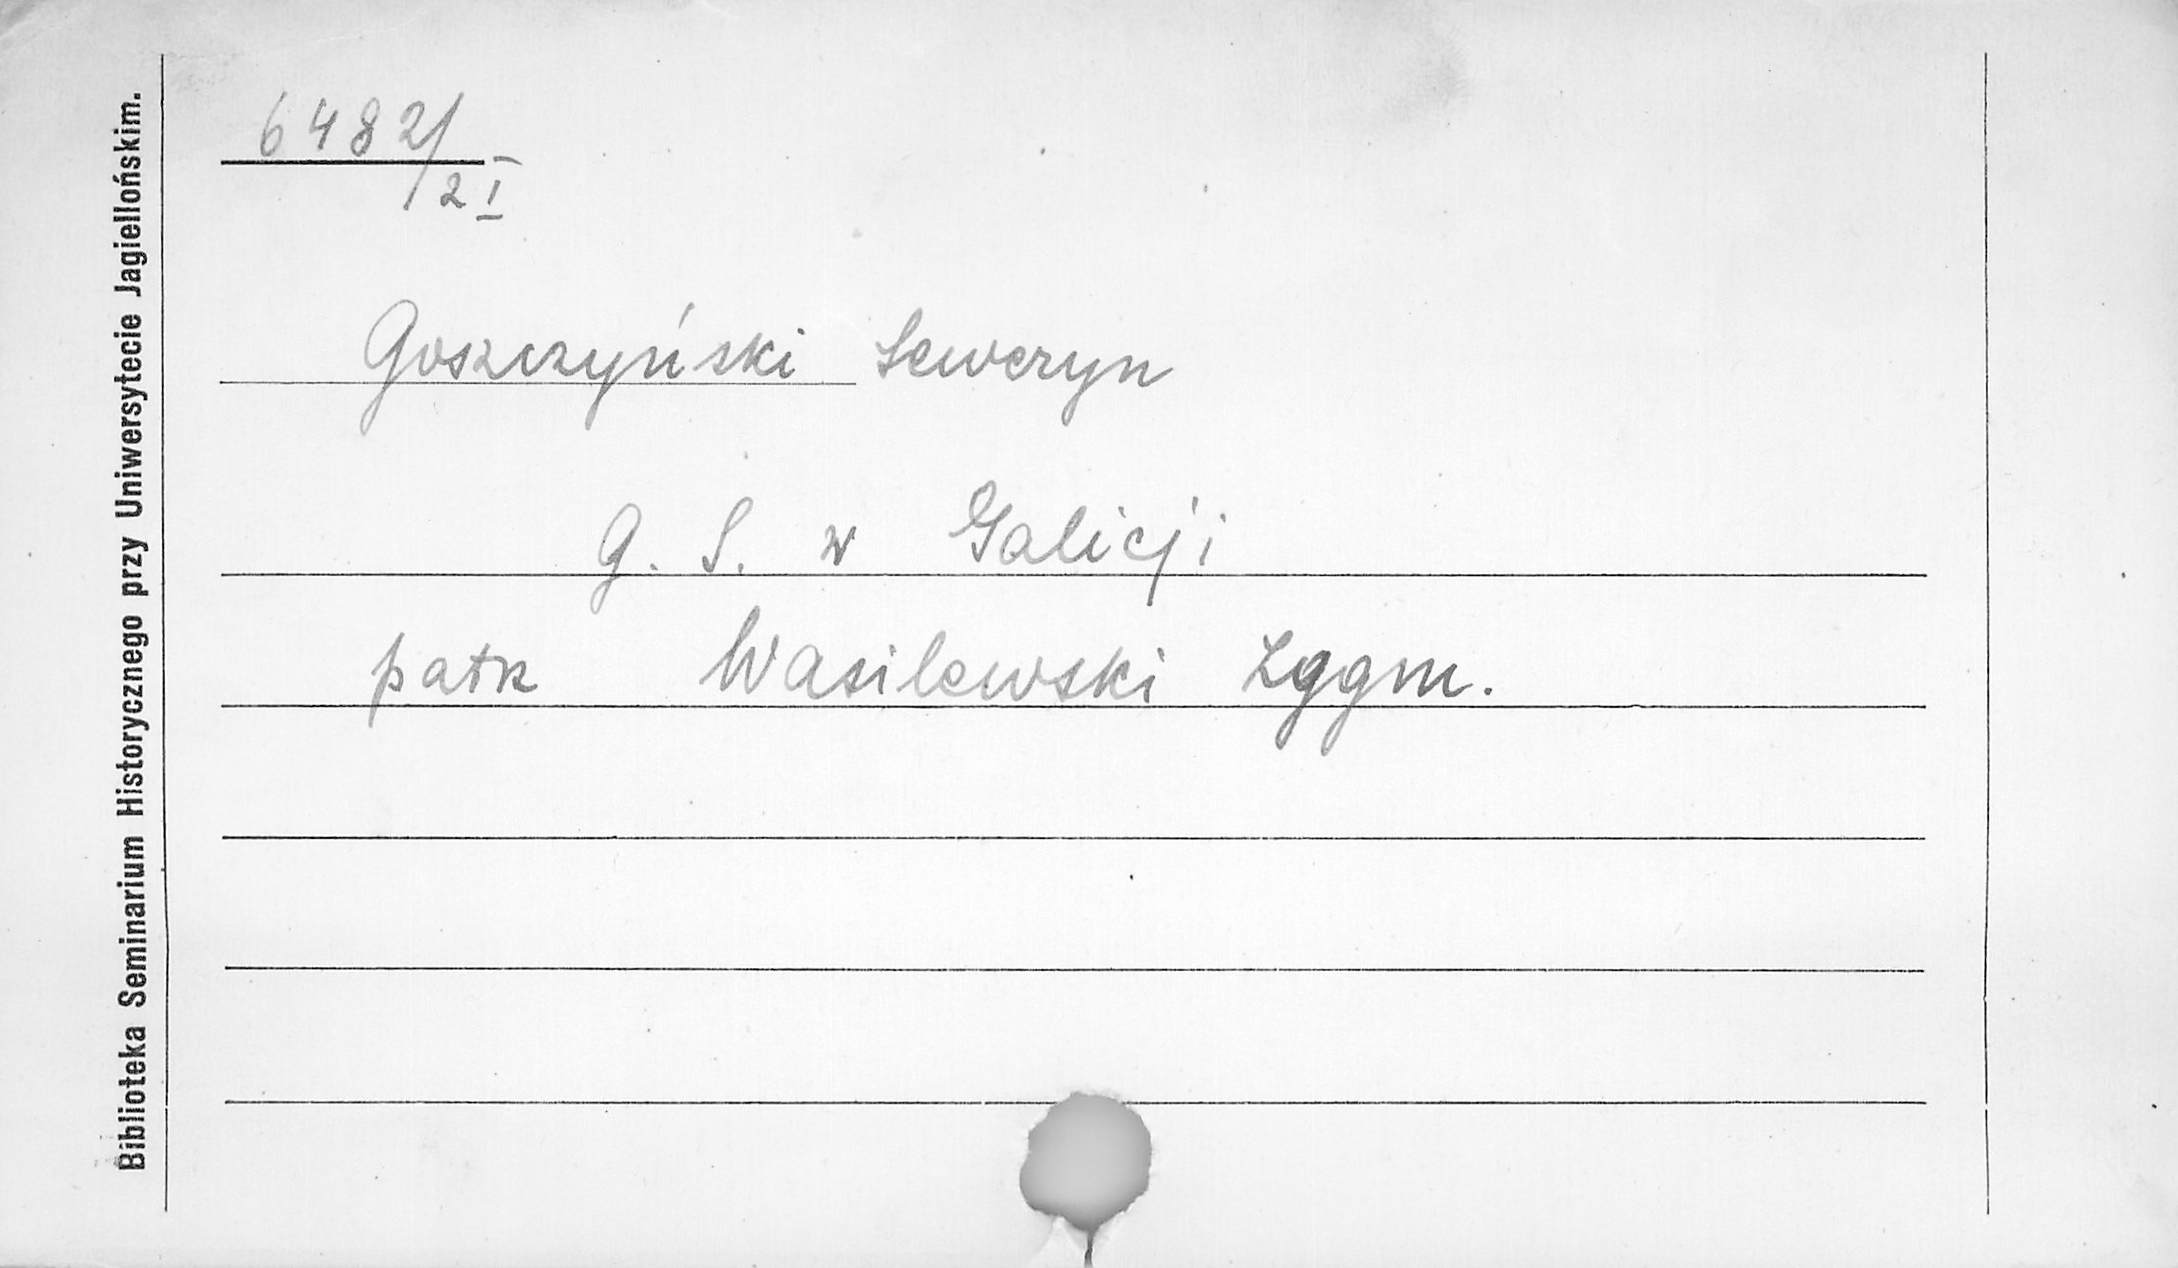 Biblioteka Seminarium Historycznego przy Uniwersytecie Jagiellońskim.
6482/2 I
Goszczyński Seweryn
G. S. w Galicji
patrz Wasilewski Zygm.